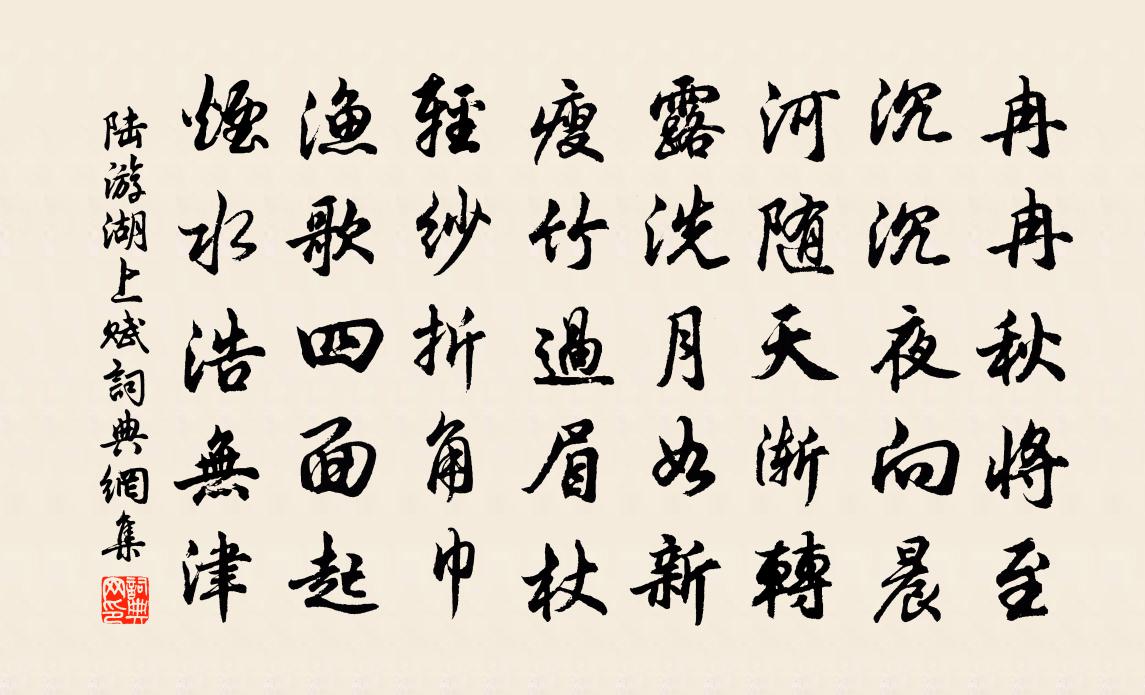 冉冉秋將至
沉沉夜向晨
河随天漸轉
露洗月如新
瘦竹過眉杖
輕紗折角巾
漁歌四面起
煙水浩無津
陆游湖上赋詞典網集
詞典网印